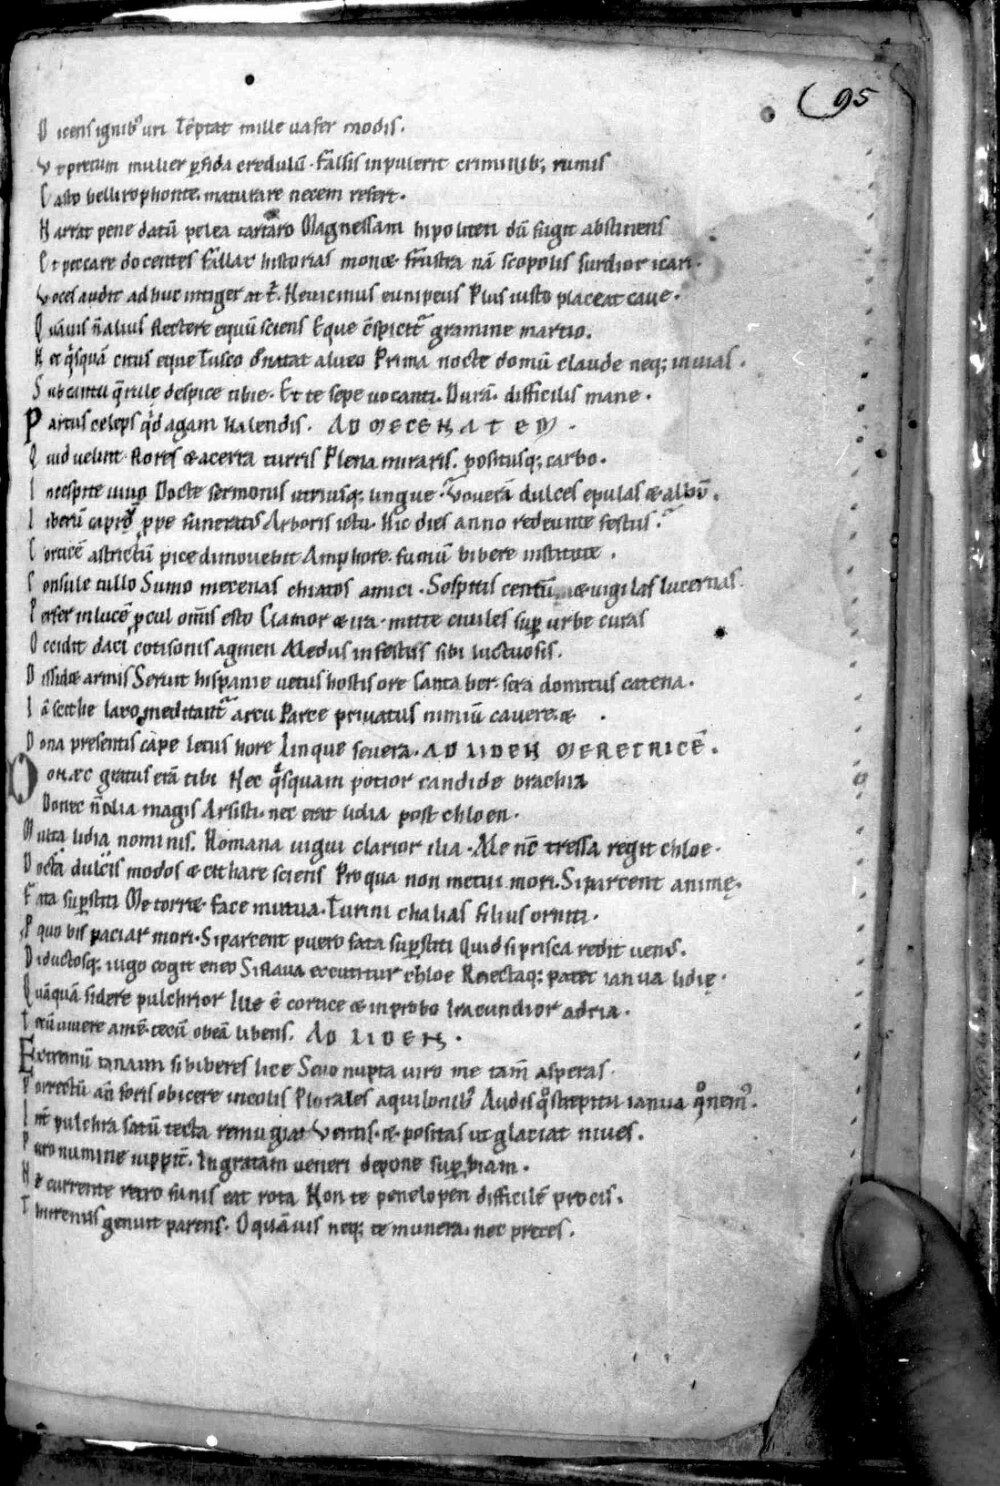 95
Dicens ignibꝰ uri Tēptat mille uafer modis.
Vt pretum mulier ꝑfida credulū. Falsis inpulerit criminib; nimis
Casto bellirophonte. maturare necem refert.
Narrat pene datū pelea tartaro Magnessam hipoliten dū fugit abstinens
Et peccare docentes fallax historias monæ frustra nā scopolis surdior icari.
Voces audit adhuc integer at t̄. Ne uicinus eunipeus Plus iusto placeat caue.
Quāuis n̄ alius flectere equū sciens Eque c̄spicit᷑ gramine martio.
Nec q̇squā citus eque Tusco d̄natat alueo Prima nocte domū claude neq; in uias.
Sub cantu q̄rule despice tibie. Et te sepe uocanti. Durā. difficilis mane.
Partus celeps q̇d agam kalendis. AD MECENATEM.
Quid uelint flores æ acerra turris Plena miraris. positusq; carbo.
In cespite uiuo Docte sermonis utriusq; lingue. Vouerā dulces epulas æ albū.
Liberū caprū ꝓpe funeratus Arboris ictu. Hic dies anno redeunte festus.
Corticē astrictū pice dimouebit Amphore. fumū bibere institute.
Consule tullo Sumo mecenas chiatos amici. Sospitis centū æ uigilas lucernas
Perfer in lucē ꝓcul om̄is esto Clamor æ ira. mitte ciuiles suꝑ urbe curas
Occidit daci cotisonis agmen Medus infestus sibi luctuosis.
Dissidæ armis Seruit hispanie uetus hostis ore Cantaber. sera domitus catena.
Iā scithe laxo meditant᷑ arcu Parce priuatus nimiū cauere. æ.
Dona presentis cape letus hore Linque seuera. AD LIDEN MERETRICĒ.
Donæc gratus erā tibi Nec q̇squam potior candide brachia
Donec n̄ alia magis Arsisti. nec erat lidia post chloen.
Multa lidia nominis. Romana uigui clarior ilia. Me nc̄ tressa regit chloe.
Docta dulcis modos æ cithare sciens Pro qua non metui mori. Si parcent animę.
Fata suꝑstiti Me torræ. face mutua. Turini chalias filius orniti.
P quo bis paciar mori. Si parcent puero fata suꝑstiti Quid si prisca redit uenꝰ.
Diductosq; iugo cogit eneo Si flaua excutitur chloe Reiectaq; patet ianua lidię.
Quāquā sidere pulchrior Ille ē cortice æ inprobo Iracundior adria.
Tecū uiuere amē. tecū obeā libens. AD LIDEN.
Extremū tanaim si biberes lice Seuo nupta uiro me tam̄ asperas.
Porrectū an̄ foris obicere incolis Plorales aquilonibꝰ Audis q̊ strepitu ianua q̊ nemꝰ.
Int̄ pulchra satū tecta remugiat Ventis. æ positas ut glaciat niues.
Puro numine iuppit᷑. Ingratam ueneri depone suꝑbiam.
Ne currente retro funis eat rota Non te penelopen difficilē procis.
Tirrenus genuit parens. O quāuis neq; te munera. nec preces.